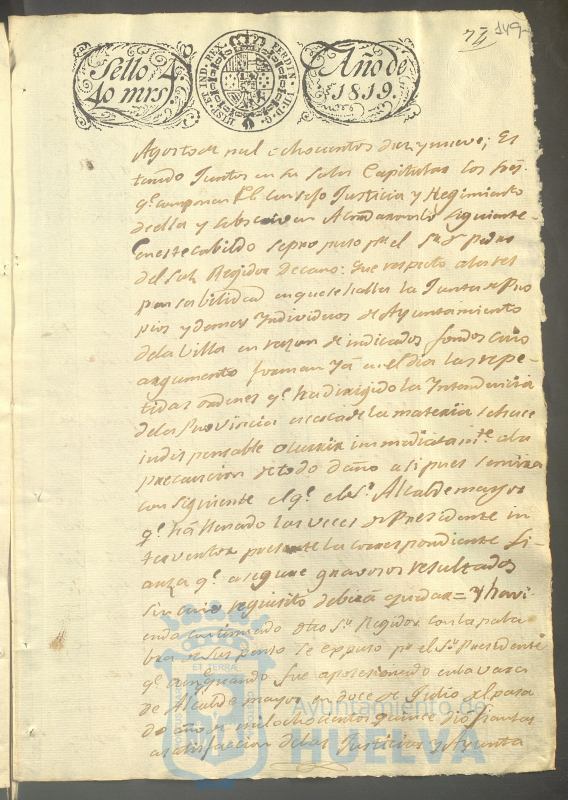 149
Sello 4º
40 mrs
HISP. ET IND. REX. FERDIN. VII. D. G.
Año de
1819.
Agosto de mil ochocientos diez y nueve; Es
tando Juntos en su Salas Capitular los Sres.
q.e componen el Consejo Justicia y Regimiento
de ella y acordaron lo siguiente
En este cabildo se propuso por el Sr. Dn. Pedro
del Sol Regidor Decano: Que respecto a la res
ponsabilidad en que se halla la Junta de Pro
pios y demas Individuos de Ayuntamiento
de la Villa en razon de indicados fondos cuio
argumento forman ya en el dia las repe-
tidas ordenes q.e ha dirigido la Intendencia
de la Provincia acerca de la materia se hace
indispensable ocurrir inmediatam.te a la
precaucion de todo daño asi pues
consiguiente el q.e el Sr. Alcalde mayor
q.e ha llenado las veces de Presidente in
terventor presente la correspondiente fi-
anza q.e asegure gravosos resultados
sin cuio requisito debera quedar = Y havi
endo continuado dho Sr. Regidor con la pala
bra de suspenso se expuso por el Sr. Presidente
q.e aunquando fue aposesionado en la vara
de Alcalde mayor en doce de Julio del pasa
do año de mil ochocientos quince dio fianzas
a satisfaccion de las Justicias y Ayunta
Ayuntamiento de
HUELVA